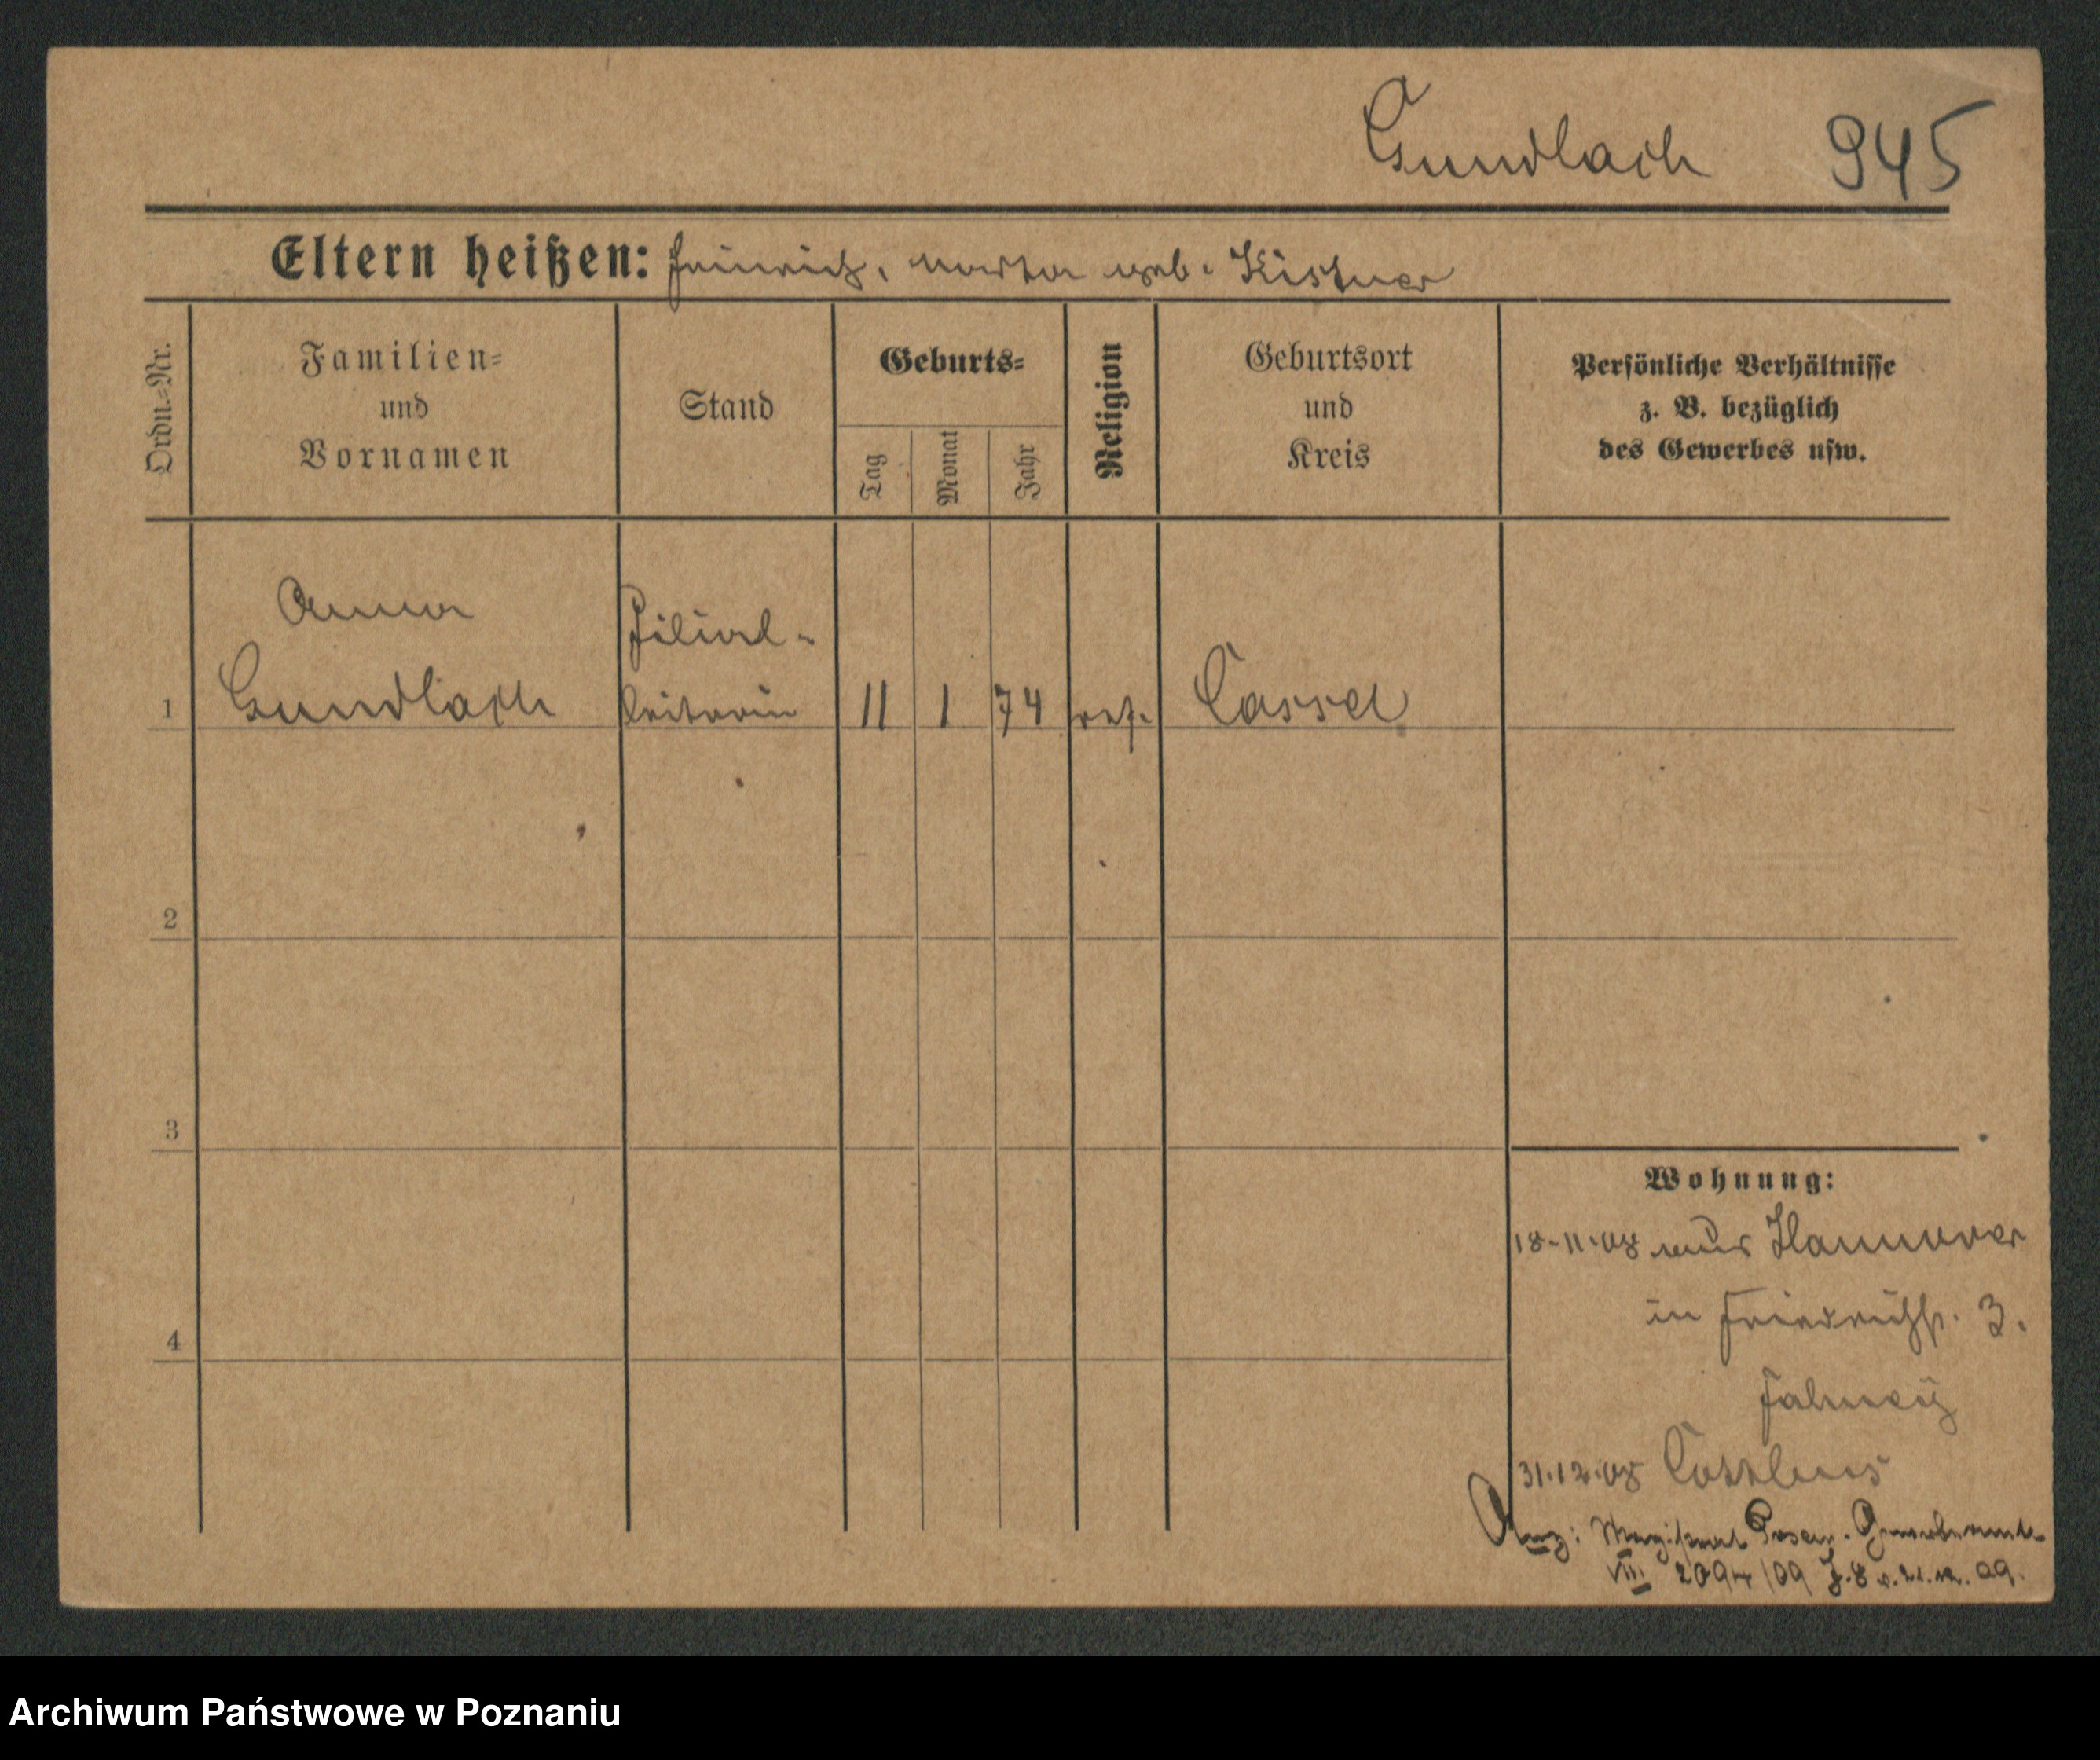 Gundlach 945
Eltern heißen: Heinrich, Martha geb. Kistner
Ordn.=Nr.
Familien=
und
Vornamen
Stand
Geburts=
Tag
Monat
Jahr
Religion
Geburtsort
und
Kreis
Persönliche Verhältnisse
z. B. bezüglich
des Gewerbes usw.
Anna
Filial-
1 Gundlach leiterin 11 1 74 ref. Cassel
2
3
4
Wohnung:
18.11.08 aus Hannover
in Friedrichstr. 3.
31.12.08 Cottbus
Anz: Magistrat Posen. Gewerbeamt
VIII 2094/09 J. 8 v. 21.12.09.
Archiwum Państwowe w Poznaniu